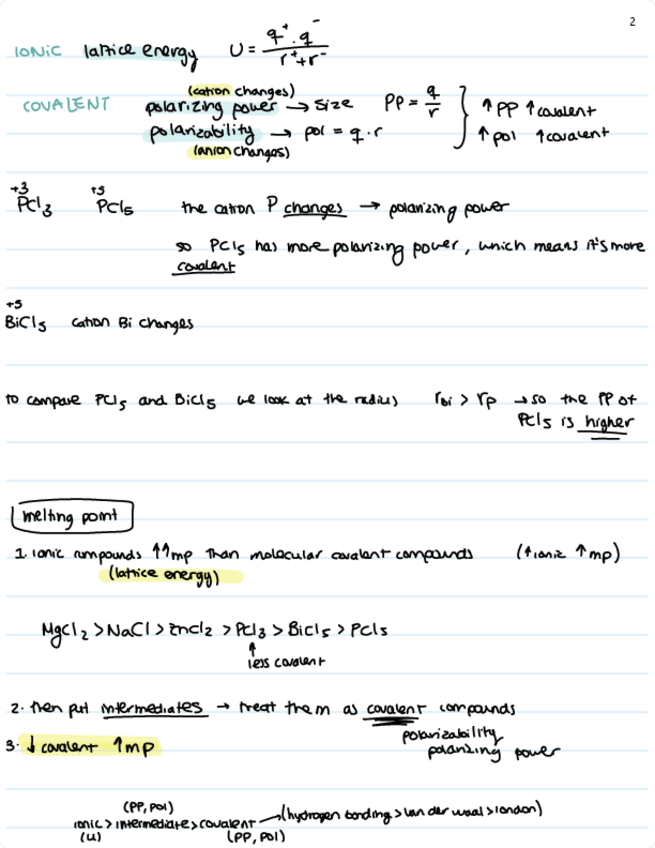 2
IONIC lattice energy U = q⁺·q⁻ / r⁺+r⁻
(cation changes)
COVALENT polarizing power → size PP = q/r } ↑PP ↑covalent
polarizability → pol = q·r ↑pol ↑covalent
(anion changes)
+3 +5
PCl₃ PCl₅ the cation P changes → polarizing power
so PCl₅ has more polarizing power, which means it's more
covalent
+5
BiCl₅ cation Bi changes
to compare PCl₅ and BiCl₅ we look at the radius r_Bi > r_P → so the PP of
PCl₅ is higher
melting point
1. ionic compounds ↑↑mp than molecular covalent compounds (↑ionic ↑mp)
(lattice energy)
MgCl₂ > NaCl > ZnCl₂ > PCl₃ > BiCl₅ > PCl₅
↑
less covalent
2. then put intermediates → treat them as covalent compounds
polarizability
polarizing power
3. ↓covalent ↑mp
(PP, pol)
ionic > intermediate > covalent → (hydrogen bonding > van der waal > london)
(U) (PP, pol)